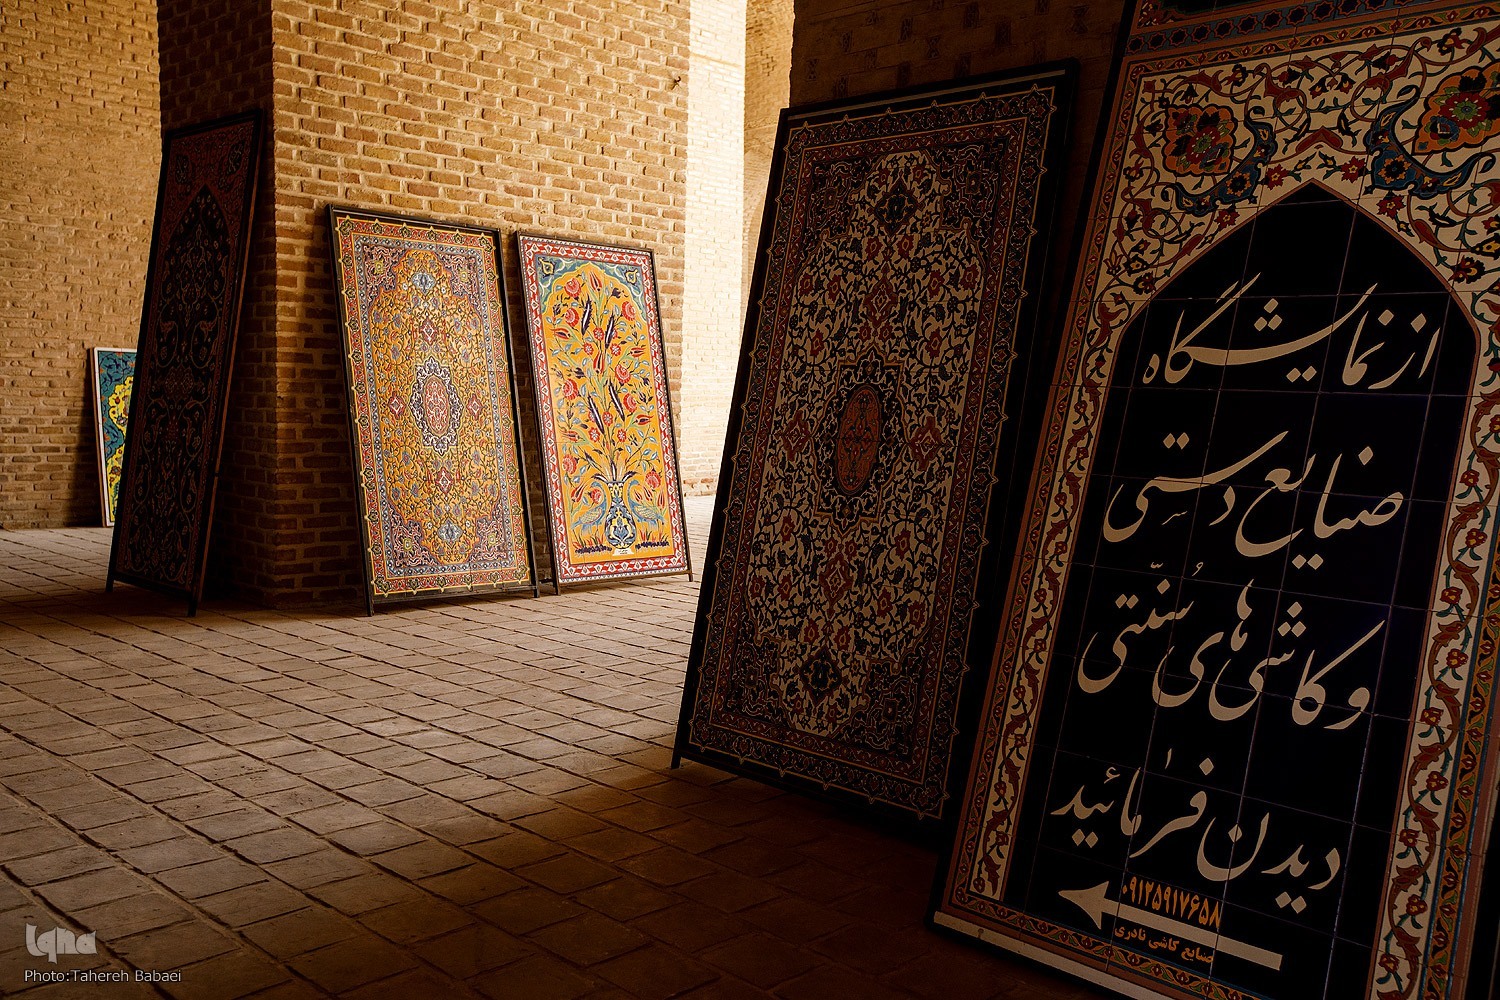 از نمایشگاه
صنایع دستی
و کاشی های سُنّتی
دیدن فرمائید
۰۹۱۲۵۹۱۷۶۵۸
صنایع کاشی نادری
Iqna
Photo:Tahereh Babaei